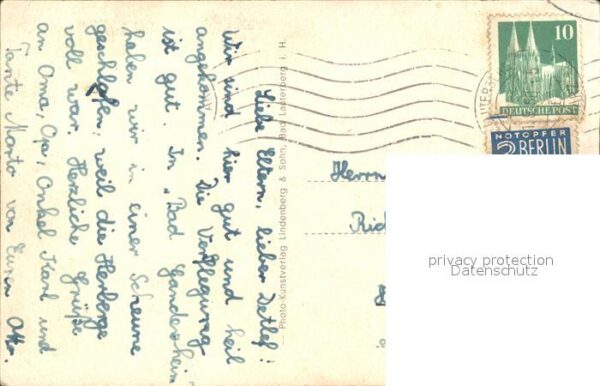 Liebe Eltern, lieber Detlef!
Wir sind hier gut und heil
angekommen. Die Verpflegung
ist gut. In „Bad Gandersheim"
haben wir in einer Scheune
geschlafen, weil die Herberge
voll war. Herzliche Grüße
an Oma, Opa, Onkel Karl und
Tante Marta von Eurem Otto.
Photo-Kunstverlag Lindenberg & Sohn, Bad Lauterberg i. H.
10
DEUTSCHE POST
NOTOPFER
2 BERLIN
Herrn
Rich
privacy protection
Datenschutz